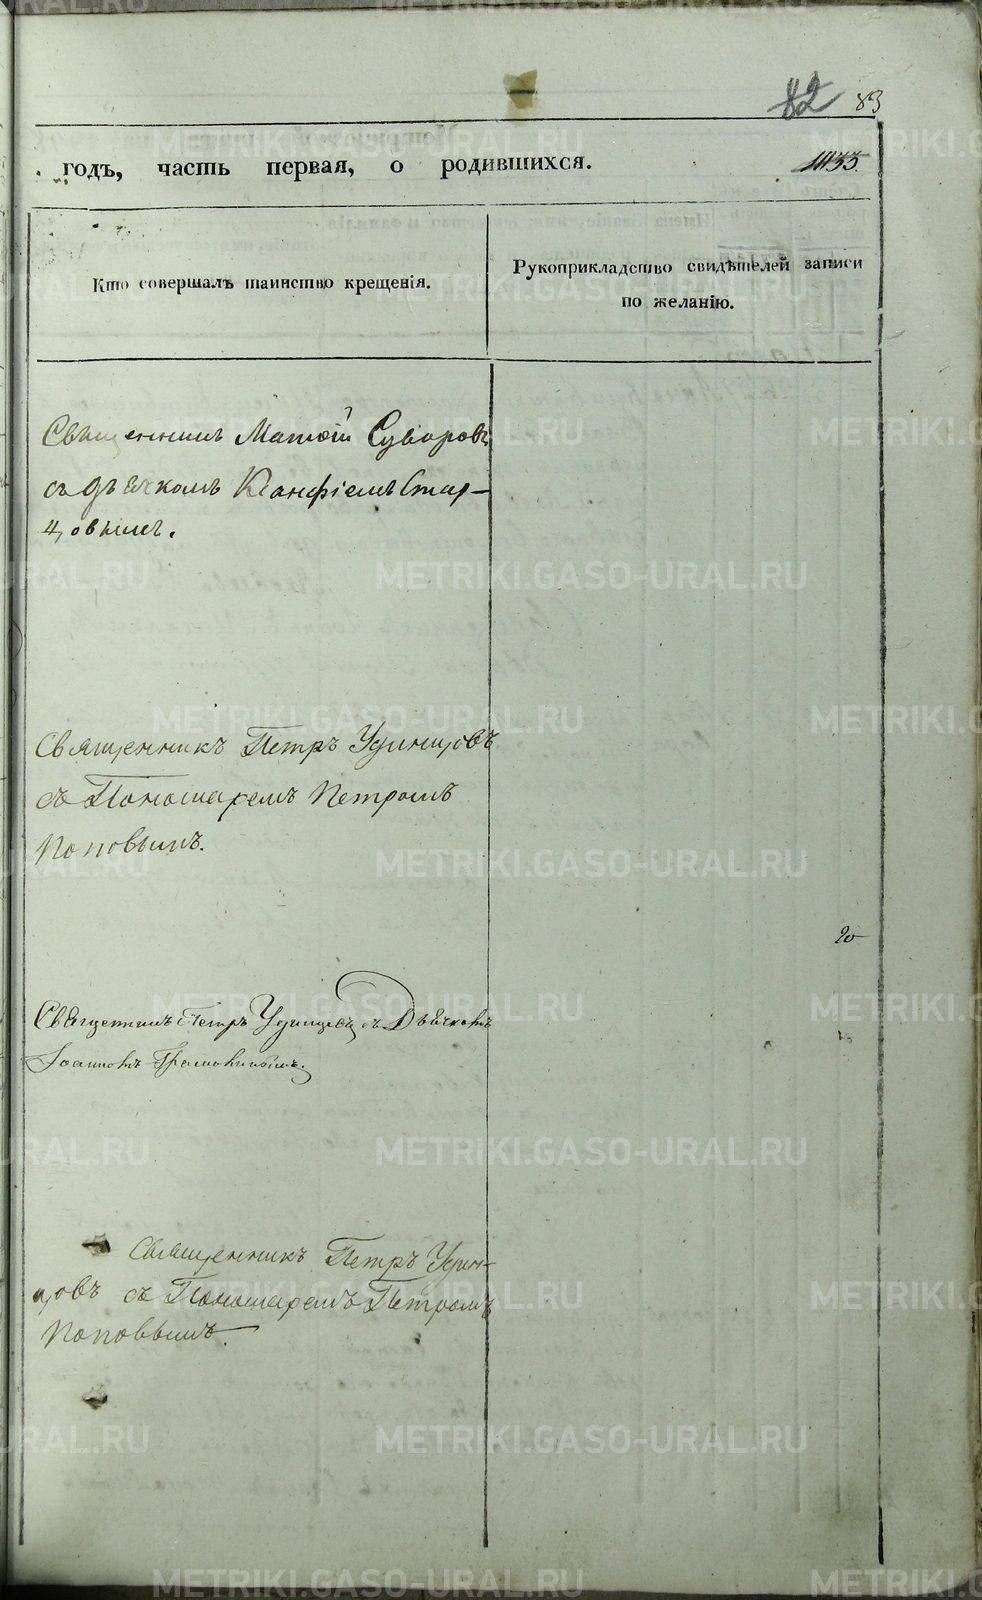 82 83
годъ, часть первая, о родившихся.
Кто совершалъ таинство крещенія.
Рукоприкладство свидѣтелей записи
по желанію.
Священникъ Матѳій Суворовъ
съ дьячкомъ Ксанфіемъ Стар-
цовымъ.
Священникъ Петръ Удинцовъ
съ Пономаремъ Петромъ
Поповымъ.
20
Священникъ Петръ Удинцевъ съ Дьячкомъ
Іоанномъ
Священникъ Петръ Удин-
цовъ съ Пономаремъ Петромъ
Поповымъ.
METRIKI.GASO-URAL.RU